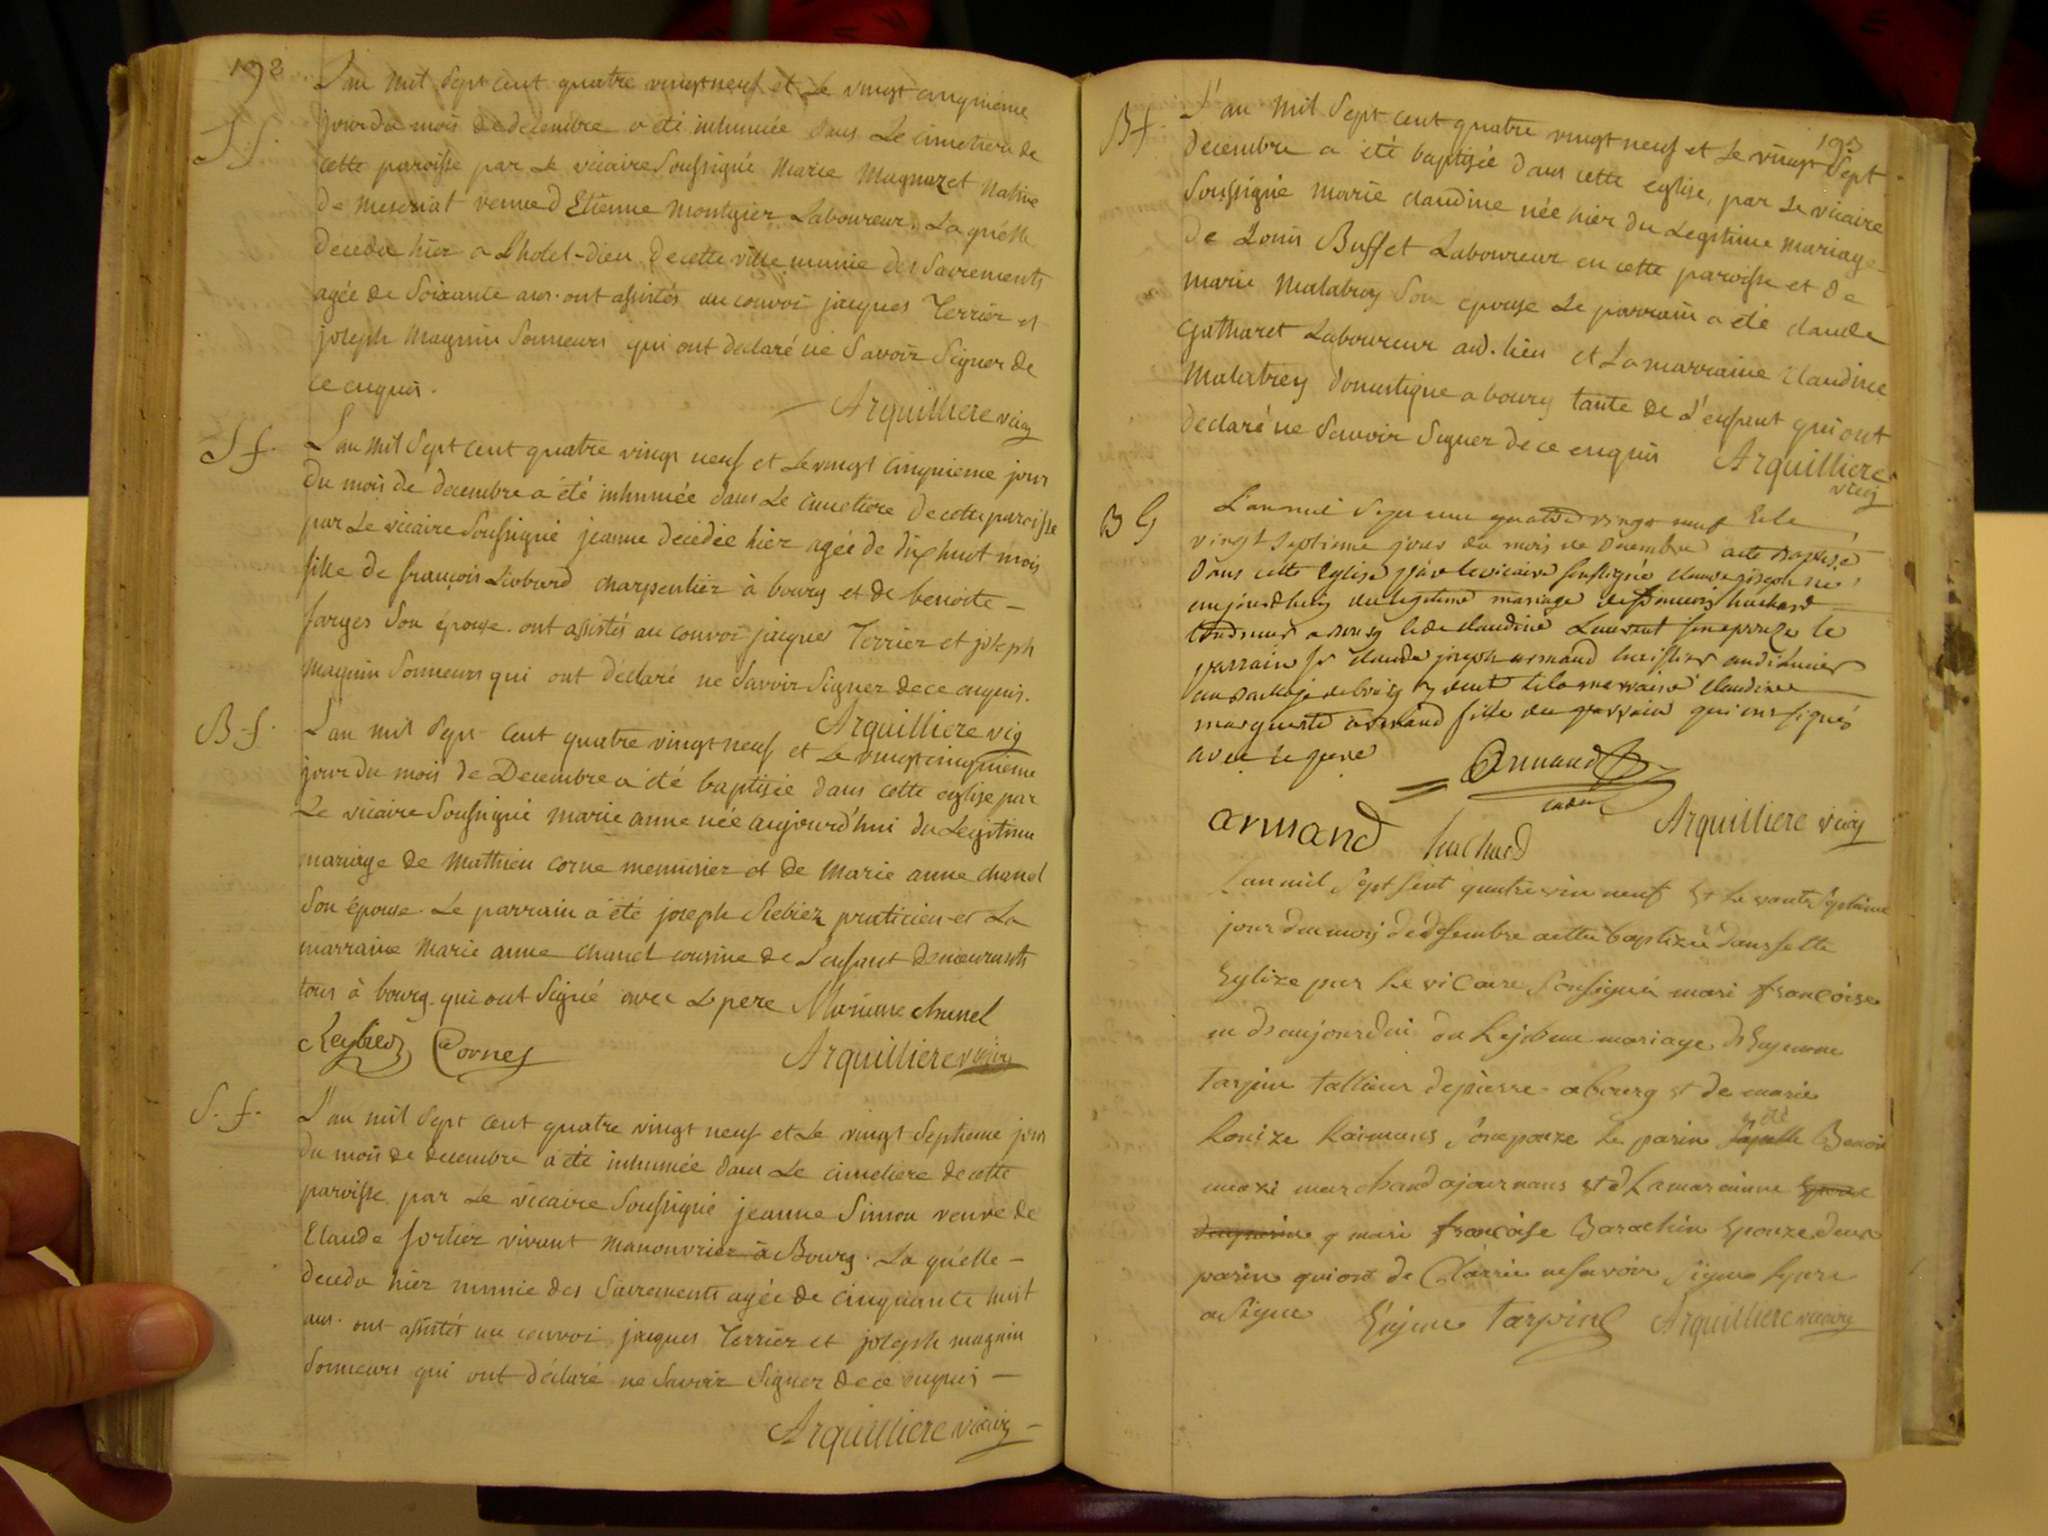 192
L'an mil sept cent quatre vingt neuf et le vingt cinquieme
S f.
jour du mois de decembre a été inhumée dans le cimetiere de
cette paroisse par le vicaire soussigné marie magnazet native
de meseriat veuve d'Etienne montgier laboureur. La quelle
deceda hier a l'hotel-dieu de cette ville munie des sacrements
agée de soixante ans. ont assistés au convoi jacques Terrier et
joseph magnin sonneurs qui ont declaré ne savoir signer de
ce enquis.
Arquilliere vic
S f.
L'an mil sept cent quatre vingt neuf et le vingt cinquieme jour
du mois de decembre a été inhumée dans le cimetiere de cette paroisse
par le vicaire soussigné jeanne decedée hier agée de dix huit mois
fille de françois charpentier à bourg et de benoite -
farges son épouse. ont assistés au convoi jacques Terrier et joseph
magnin sonneurs qui ont déclaré ne savoir signer de ce enquis.
Arquilliere vic
B. f.
L'an mil sept cent quatre vingt neuf et le vingt cinquieme
jour du mois de Decembre a été baptisée dans cette eglise par
le vicaire soussigné marie anne née aujourd'hui du legitime
mariage de mathieu corne menuisier et de marie anne chanel
son épouse. Le parrain a été joseph praticien et la
marraine marie anne chanel cousine de l'enfant demeurants
tous à bourg. qui ont signé avec le pere Marianne chanel
Cornes Arquilliere vicaire
S. f.
L'an mil sept cent quatre vingt neuf et le vingt septieme jour
du mois de decembre a été inhumée dans le cimetiere de cette
paroisse par le vicaire soussigné jeanne Simon veuve de
Claude fortier vivant manouvrier à Bourg. La quelle -
deceda hier munie des sacrements agée de cinquante huit
ans. ont assistés au convoi jacques Terrier et joseph magnin
sonneurs qui ont déclaré ne savoir signer de ce enquis -
Arquilliere vicaire
193
B f.
L'an mil sept cent quatre vingt neuf et le vingt sept
decembre a été baptisée dans cette eglise, par le vicaire
soussigné marie claudine née hier du legitime mariage
de Louis Buffet laboureur en cette paroisse et de
marie malatrey son epouse le parrain a été claude
Gutharet laboureur aud. lieu et la marraine claudine
malatrey domestique a bourg tante de l'enfent qui ont
declaré ne savoir signer de ce enquis Arquilliere
vicq
B G
L'an mil sept cent quatre vingt neuf & le
vingt septieme jour du mois de decembre a été baptisé
dans cette Eglise par le vicaire soussigné claude joseph né
aujourdhuy du legitime mariage de huchard
a bourg & de claudine Laurent son epouze le
parrain sr claude joseph armand huissier audiancier
au bailliage de bourg & la marraine claudine
marguerite armand fille du parrain qui ont signés
avec le pere Armand
cader
armand huchard Arquilliere vicq
Lan mil sept sent quatre vin neuf Et le vante septieme
jour du mois de desembre a ette baptizée dans sette
Eglize par le vicaire sousigné mari françoise
né daujourdui du lejitime mariage d'Eugenne
tarpin tallieur de pierre a bourg et de marie
Louize son epouze le parin été Benoit
marchand a journans et la maraine
mari françoise Barachin Epouze deux
parin qui ont de Clarrée ne savoir signe le pere
a signe Eugene tarpin Arquilliere vicaire